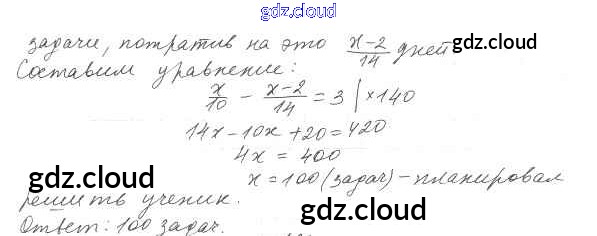 gdz.cloud
задачи, потратив на это (x-2)/14 дней
gdz.cloud
Составим уравнение:
x/10 - (x-2)/14 = 3 | ×140
gdz.cloud
14x-10x+20=420
4x = 400
gdz.cloud
x = 100 (задач) - планировал
gdz.cloud
решить ученик.
Ответ: 100 задач.